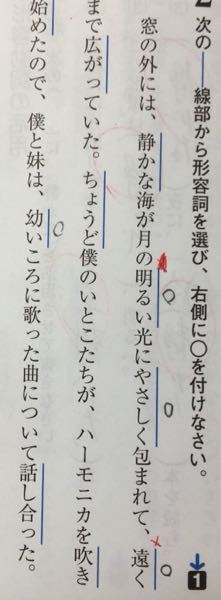 2 次の――線部から形容詞を選び、右側に○を付けなさい。 1
窓の外には、静かな海が月の明るい光にやさしく包まれて、遠く
まで広がっていた。ちょうど僕のいとこたちが、ハーモニカを吹き
始めたので、僕と妹は、幼いころに歌った曲について話し合った。